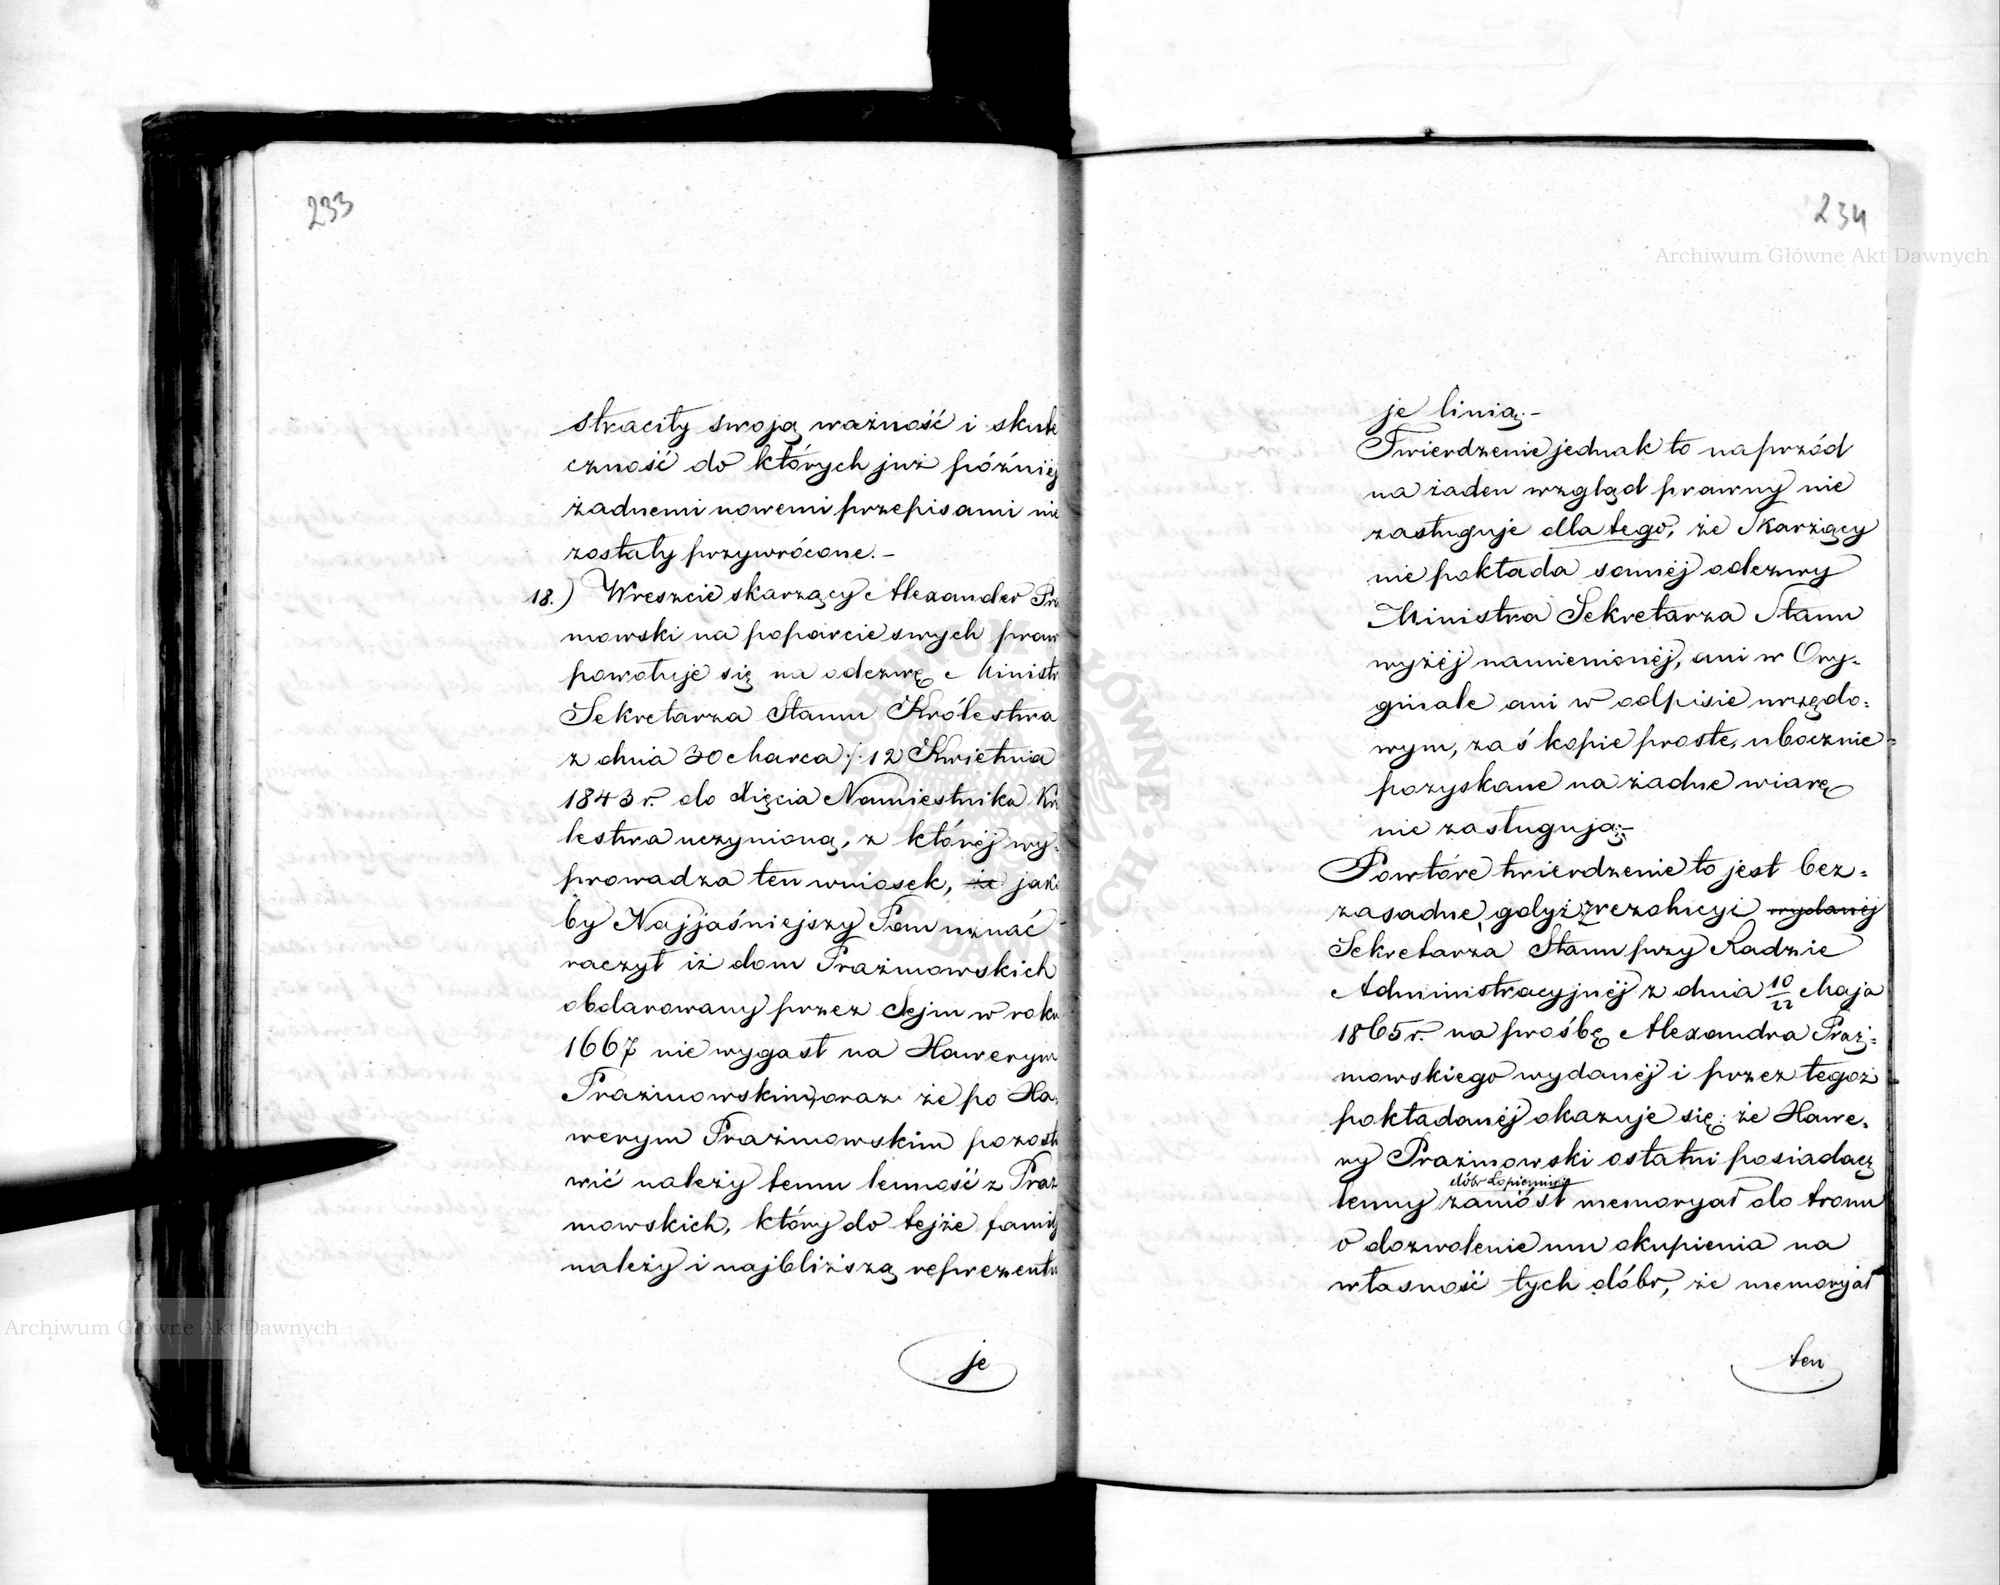 233
straciły swoją ważność i skute
czność do których już późniéj
żadnemi nowemi przepisami nie
zostały przywrócone.–
18.) Wreszcie skarżący Alexander Pra
mowski na poparcie swych praw
powołuje się na odezwę Ministr
Sekretarza Stanu Królestwa
z dnia 30 Marca /: 12 Kwietnia
1843 r. do Xięcia Namiestnika Kró
lestwa uczynioną, z któréj wy-
prowadza ten wniosek, że jak
by Najjaśniejszy Pan uznać
raczył iż dom Prażmowskich
obdarowany przez Sejm w roku
1667 nie wygasł na Xawerym
Prażmowskim, oraz że po Xa-
werym Prażmowskim pozosta
wić należy temu lenność z Praż
mowskich, który do tejże famil
należy i najbliższą reprezentu
je
234
je linią.–
Twierdzenie jednak to naprzód
na żaden wzgląd prawny nie
zasługuje dla tego, że Skarżący
nie pokłada saméj odezwy
Ministra Sekretarza Stanu
wyżéj namienionéj, ani w Ory-
ginale ani w odpisie urzędo-
wym, zaś kopie proste, ubocznie
pozyskane na żadne wiarę
nie zasługują.–
Powtóre twierdzenie to jest bez-
zasadne, gdyż z rezolucyi wydanéj
Sekretarza Stanu przy Radzie
Administracyjnéj z dnia 10/22 Maja
1865 r. na prośbę Alexandra Praż-
mowskiego wydanéj i przez tegoż
pokładanéj okazuje się: że Xawe-
ry Prażmowski ostatni posiadacz
dóbr Łopiennica
lenny zaniósł memoryał do tronu
o dozwolenie mu okupienia na
własność tych dóbr, że memoryał
ten
Archiwum Główne Akt Dawnych
Archiwum Główne Akt Dawnych